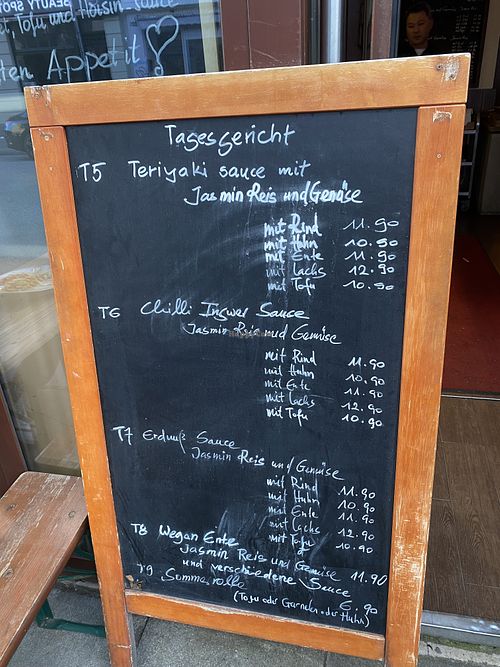 BEAUTY SPOT
Tofu und Hoisin-Sauce
ten Appetit!
Tagesgericht
T5 Teriyaki sauce mit
Jasmin Reis und Gemüse
mit Rind 11.90
mit Hühn 10.90
mit Ente 11.90
mit Lachs 12.90
mit Tofu 10.90
T6 Chilli Ingwer Sauce
Jasmin Reis und Gemüse
mit Rind 11.90
mit Huhn 10.90
mit Ente 11.90
mit Lachs 12.90
mit Tofu 10.90
T7 Erdnuß Sauce
Jasmin Reis und Gemüse
mit Rind 11.90
mit Huhn 10.90
mit Ente 11.90
mit Lachs 12.90
mit Tofu 10.90
T8 Wegan Ente
Jasmin Reis und Gemüse 11.90
und verschiedene Sauce
T9 Sommerrolle 6.90
(Tofu oder Garnelen oder Huhn)